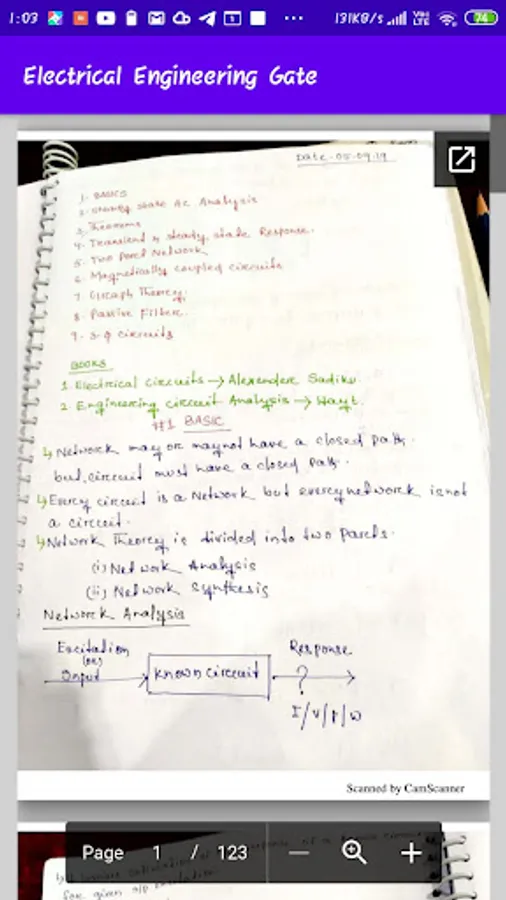 1:03
131KB/s
Vo LTE
74
Electrical Engineering Gate
Date - 05.09.19
1. BASICS
2. Steady state Ac Analysis
3. Theorems
4. Transient & steady state Response.
5. Two Port Network
6. Magnetically coupled circuits
7. Graph Theory.
8. Passive Filter
9. 3-φ circuits
BOOKS
1. Electrical circuits → Alexender Sadiku
2. Engineering circuit Analysis → Hayt.
#1 BASIC
↳ Network may or maynot have a closed path.
but, circuit must have a closed path.
↳ Every circuit is a Network but every network is not
a circuit.
↳ Network Theory is divided into two parts.
(i) Network Analysis
(ii) Network Synthesis
Network Analysis
Excitation
(or)
Input
known circuit
Response
?
I/V/P/W
Scanned by CamScanner
Page 1 / 123
for given